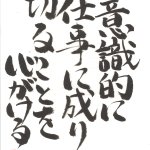 意識的に
仕事に成り
切ることを
心がける